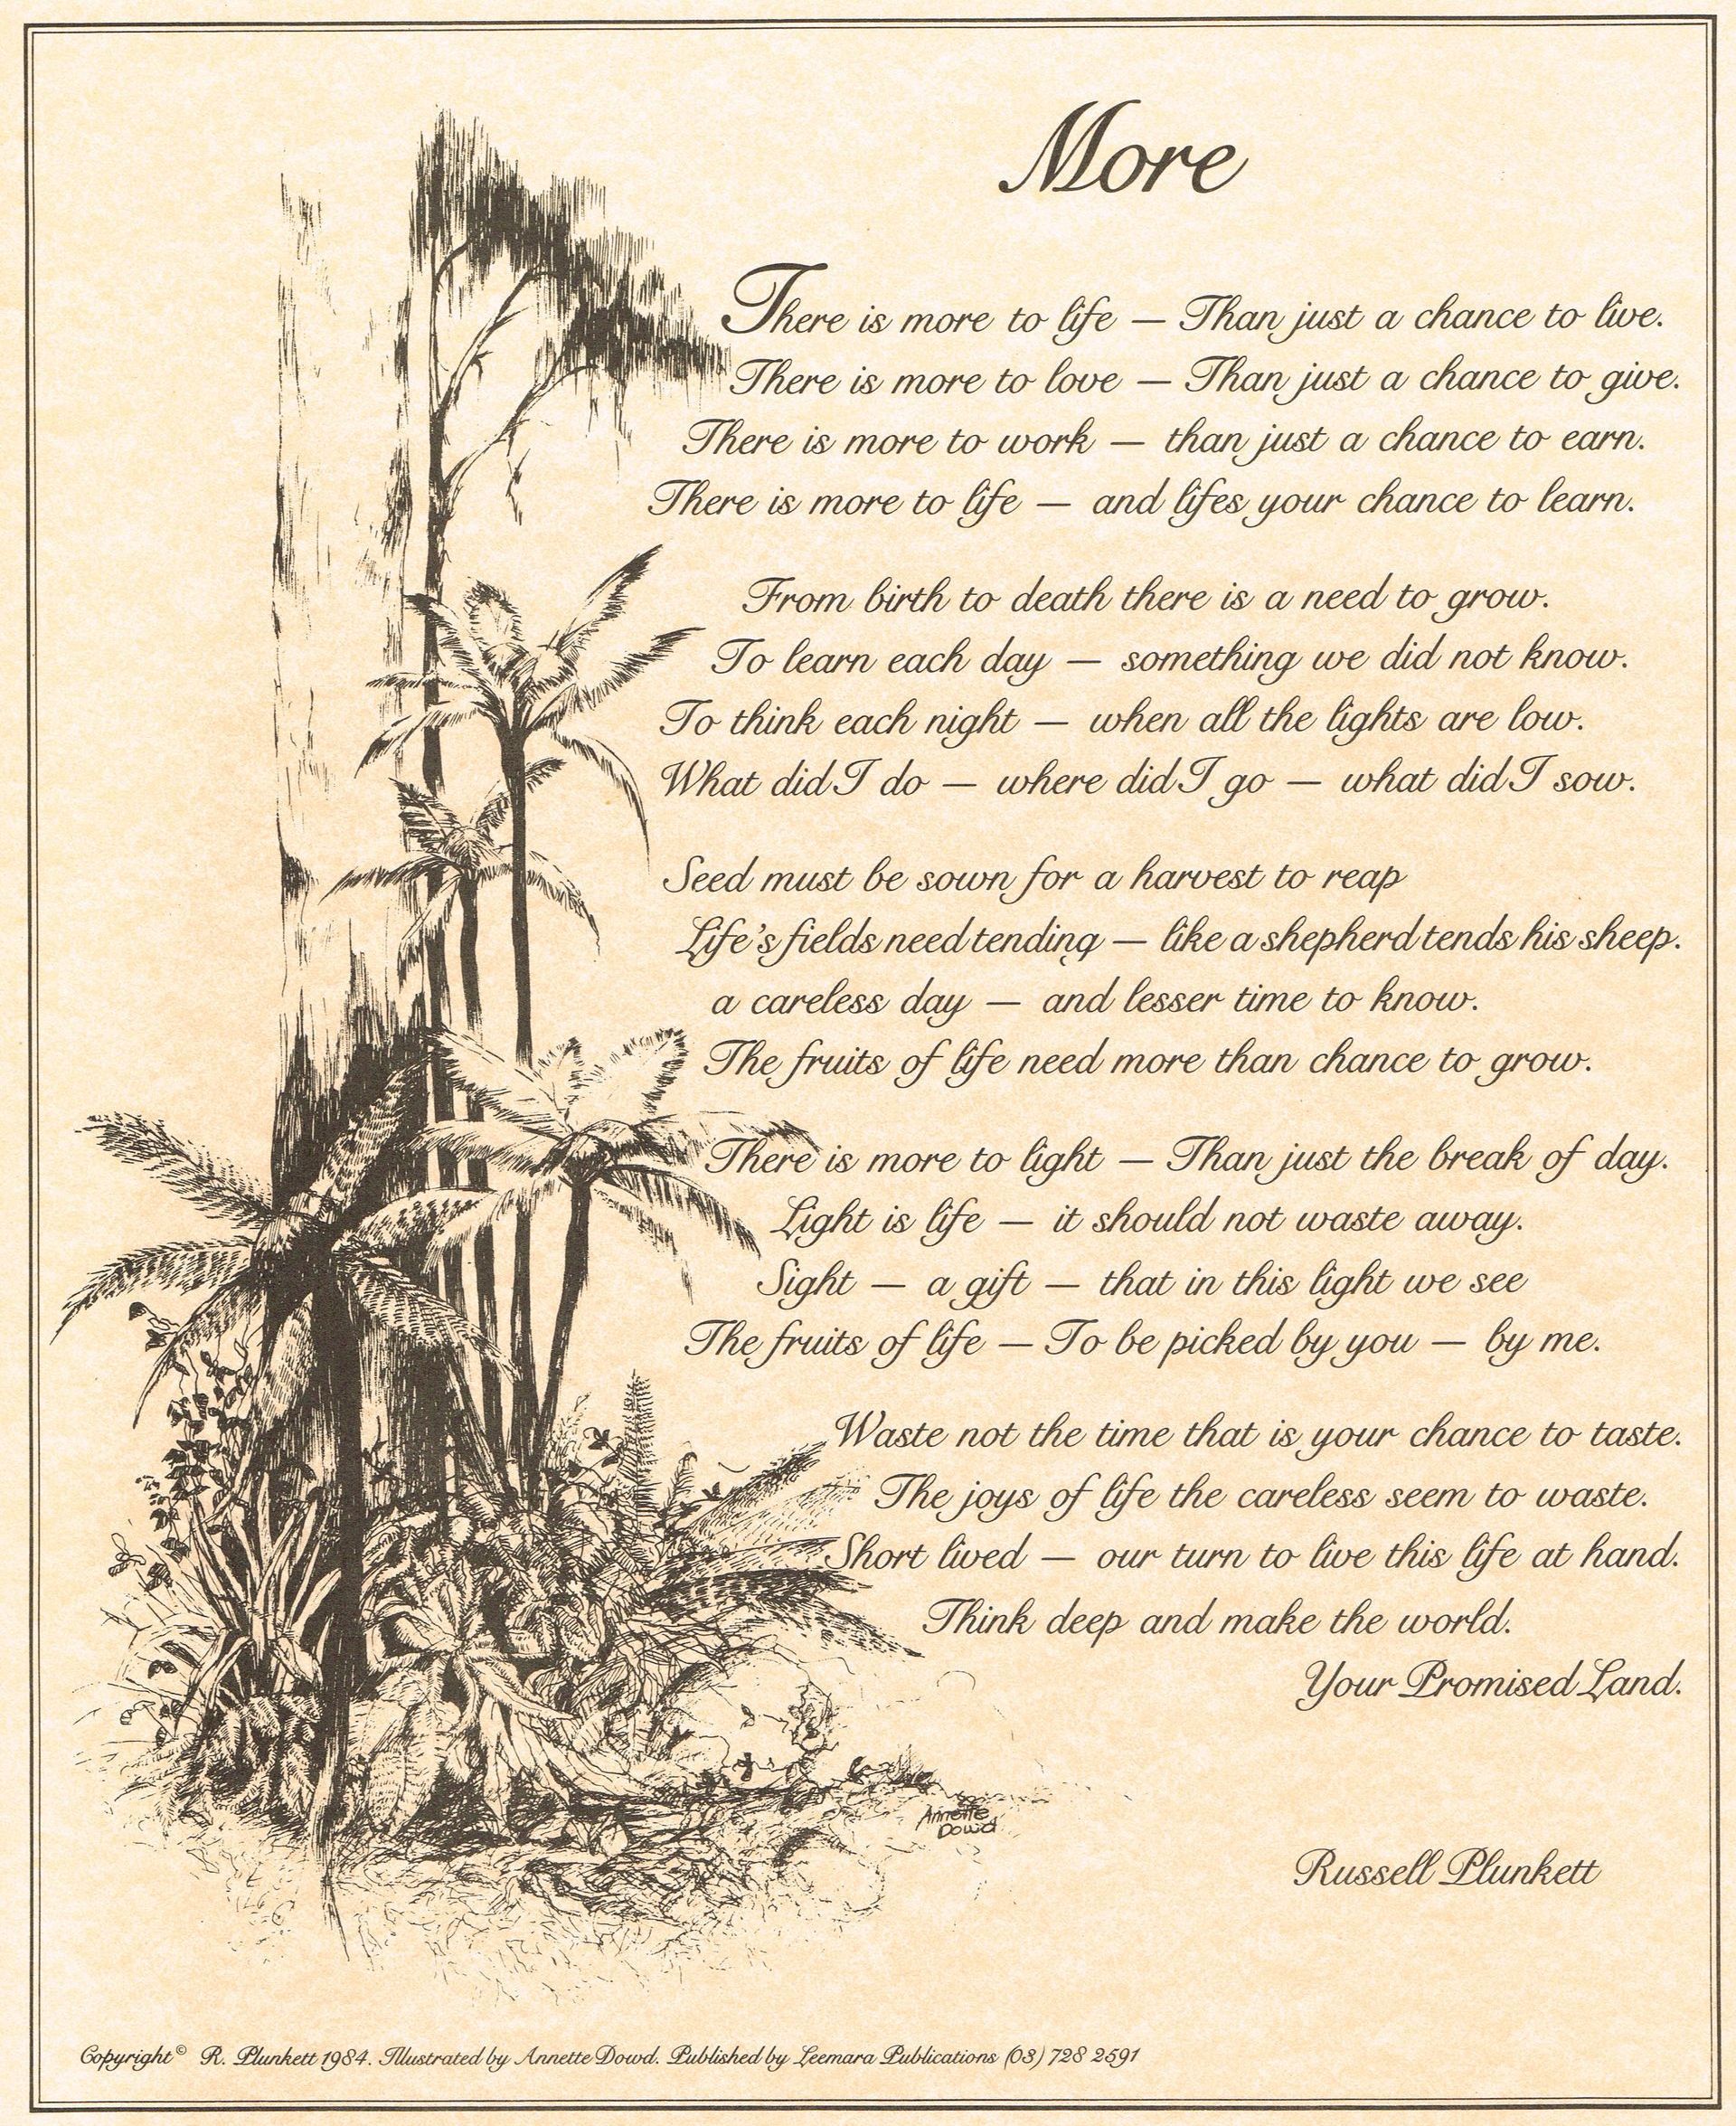 More
There is more to life — Than just a chance to live.
There is more to love — Than just a chance to give.
There is more to work — than just a chance to earn.
There is more to life — and lifes your chance to learn.
From birth to death there is a need to grow.
To learn each day — something we did not know.
To think each night — when all the lights are low.
What did I do — where did I go — what did I sow.
Seed must be sown for a harvest to reap
Life's fields need tending — like a shepherd tends his sheep.
a careless day — and lesser time to know.
The fruits of life need more than chance to grow.
There is more to light — Than just the break of day.
Light is life — it should not waste away.
Sight — a gift — that in this light we see
The fruits of life — To be picked by you — by me.
Waste not the time that is your chance to taste.
The joys of life the careless seem to waste.
Short lived — our turn to live this life at hand.
Think deep and make the world.
Your Promised Land.
Annette
Dowd
Russell Plunkett
Copyright © R. Plunkett 1984. Illustrated by Annette Dowd. Published by Leemara Publications (03) 728 2591